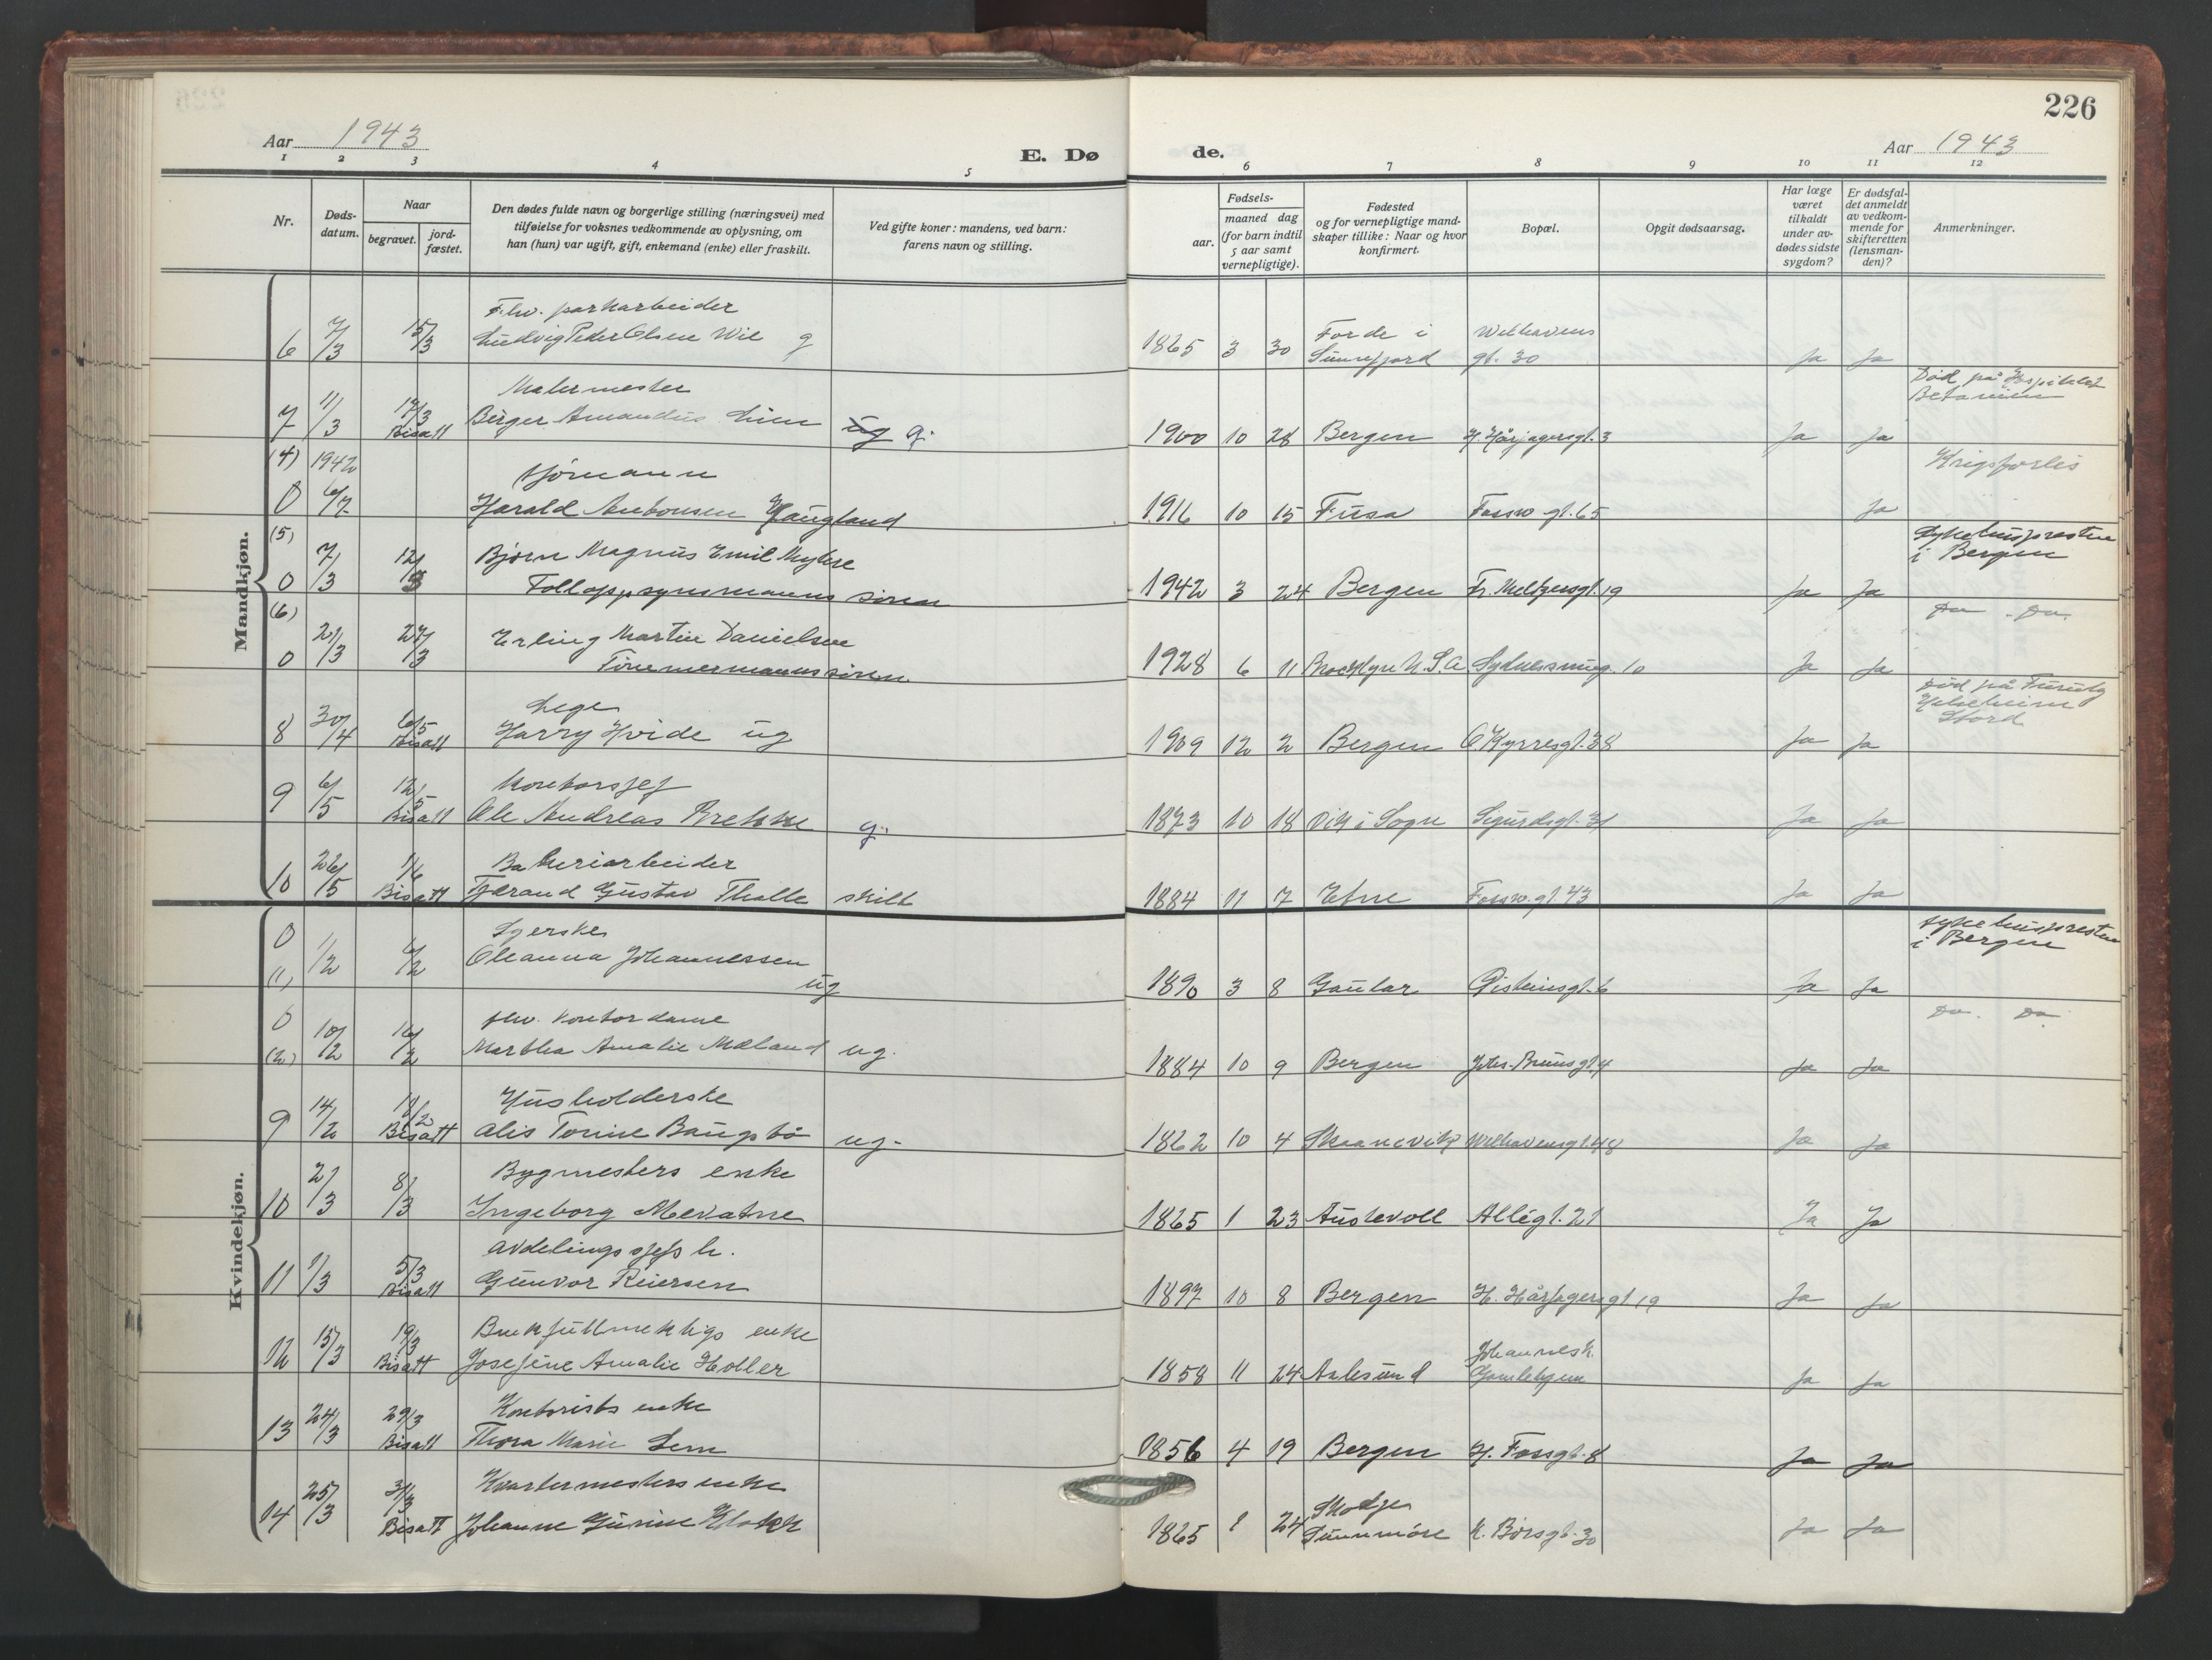 226
Aar 1943
E. Dø
de.
Aar 1943
1 2 3 4 5 6 7 8 9 10 11 12
Nr.
Døds-
datum.
Naar
begravet.
jord-
fæstet.
Den dødes fulde navn og borgerlige stilling (næringsvei) med
tilføielse for voksnes vedkommende av oplysning, om
han (hun) var ugift, gift, enkemand (enke) eller fraskilt.
Ved gifte koner: mandens, ved barn:
farens navn og stilling.
Fødsels-
aar.
maaned dag
(for barn indtil
5 aar samt
vernepligtige).
Fødested
og for vernepligtige mand-
skaper tillike: Naar og hvor
konfirmert.
Bopæl.
Opgit dødsaarsag.
Har læge
været
tilkaldt
under av-
dødes sidste
sygdom?
Er dødsfal-
det anmeldt
av vedkom-
mende for
skifteretten
(lensman-
den)?
Anmerkninger.
Mandkjøn.
F.hv. parkarbeider
6 7/3 15/3 Ludvig Peder Olsen Wie g 1865 3 30 Førde i Sunnfjord Welhavens gt. 30 Ja Ja
Malermester
7 11/3 17/3 Bisatt Birger Amandus Lien ug g. 1900 10 28 Bergen H. Hårfagersgt. 3 Ja Ja Død på Hospitalet Betanien
(4) 1942 sjømann
0 6/7 Harald Antonsen Haugland 1916 10 15 Fusa Fossw.gt. 65 Ja Krigsforlis
(5)
0 7/3 12/3 Bjørn Magnus Emil Myhre
Tolloppsynsmanns sønn 1942 3 24 Bergen Fr. Meltzersgt. 19 Ja Ja Sykehuspresten i Bergen
(6)
0 21/3 27/3 Erling Martin Danielsen
Tømmermanns sønn 1928 6 11 Brooklyn U.S.A. Sydnessmug. 10 Ja Ja Do. Do.
Lege
8 30/4 6/5 Bisatt Harry Hvide ug 1909 12 2 Bergen O Kyrresgt. 38 Ja Ja Død på Stord
Kontorsjef
9 6/5 12/5 Bisatt Ole Andreas Brekke g. 1873 10 18 Vik i Sogn Sigurdsgt. Ja Ja
Bakeriarbeider
10 26/5 1/6 Bisatt Tjerand Gustav Thalle skilt 1884 11 7 Etne Fossw.gt. 43 Ja Ja
Kvindekjøn.
Syerske
0 (1) 1/2 6/2 Oleanna Johannessen ug 1890 3 8 Gaular Ja Ja sykehuspresten i Bergen
fhv. kontordame
0 (2) 10/2 16/2 Martha Amalie Mæland ug. 1884 10 9 Bergen Ja Ja Do. Do.
Husholderske
9 14/2 18/2 Bisatt Alis Tomine Baugstø ug. 1862 10 4 Skaanevik Welhavensgt. 48 Ja Ja
Bygmesters enke
10 2/3 8/3 Ingeborg Mevatne 1865 1 23 Austevoll Allégt. 21 Ja Ja
Avdelingssjefs h.
11 1/3 5/3 Bisatt Gunvor Reiersen 1897 10 8 Bergen H. Hårfagersgt 19 Ja Ja
Bankfullmektigs enke
12 15/3 19/3 Bisatt Josefine Amalie Holler 1858 11 24 Aalesund Johannesk. Gamlehjem Ja Ja
Kontorists enke
13 24/3 29/3 Bisatt Thora Marie Lem 1856 4 19 Bergen H. Fossgt. 8 Ja Ja
Kvartermesters enke
14 25/3 31/3 Bisatt Johanne Gurine 1865 1 24 Skodje Sunnmøre N. Børsgt. 30 Ja Ja